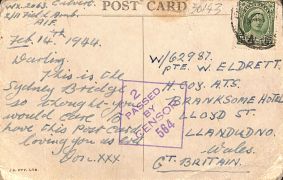 POST CARD
36143
2/11 Field Amb.
A.I.F.
Feb. 14th 1944.
Darling,
This is the
Sydney Bridge
so thought you
would care to
have this Post Card
loving you as ever
2
PASSED
BY
CENSOR
564
W/62987.
Pte. W. ELDRETT.
H. COY. A.T.S.
BRANKSOME HOTEL
LLOYD ST.
LLANDUDNO.
Wales.
GT. BRITAIN.